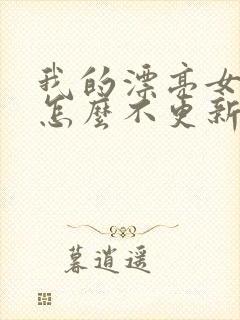 我的漂亮女
怎麼不更新
暮逍遥